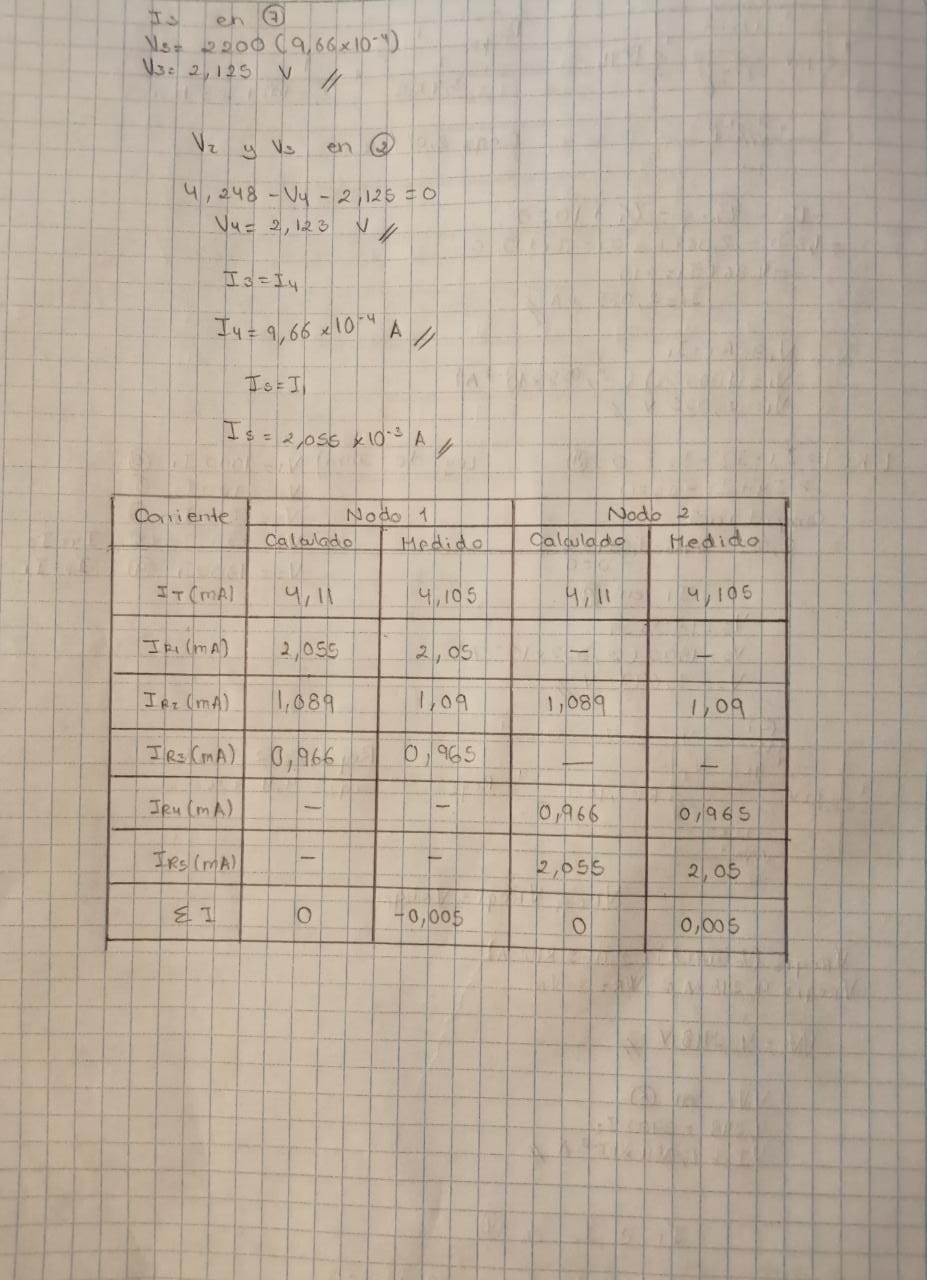 I3 en ⑦
V3= 2200 (9,66x10⁻⁴)
V3= 2,125 V //
V2 y V3 en ②
4,248 - V4 - 2,125 = 0
V4= 2,123 V //
I3 = I4
I4 = 9,66 x10⁻⁴ A //
I5 = I1
I5 = 2,055 x10⁻³ A //
Corriente Nodo 1 Nodo 2
Calculado Medido Calculado Medido
IT (mA) 4,11 4,105 4,11 4,105
IR1 (mA) 2,055 2,05 — —
IR2 (mA) 1,089 1,09 1,089 1,09
IR3 (mA) 0,966 0,965 — —
IR4 (mA) — — 0,966 0,965
IR5 (mA) — — 2,055 2,05
Σ I 0 -0,005 0 0,005